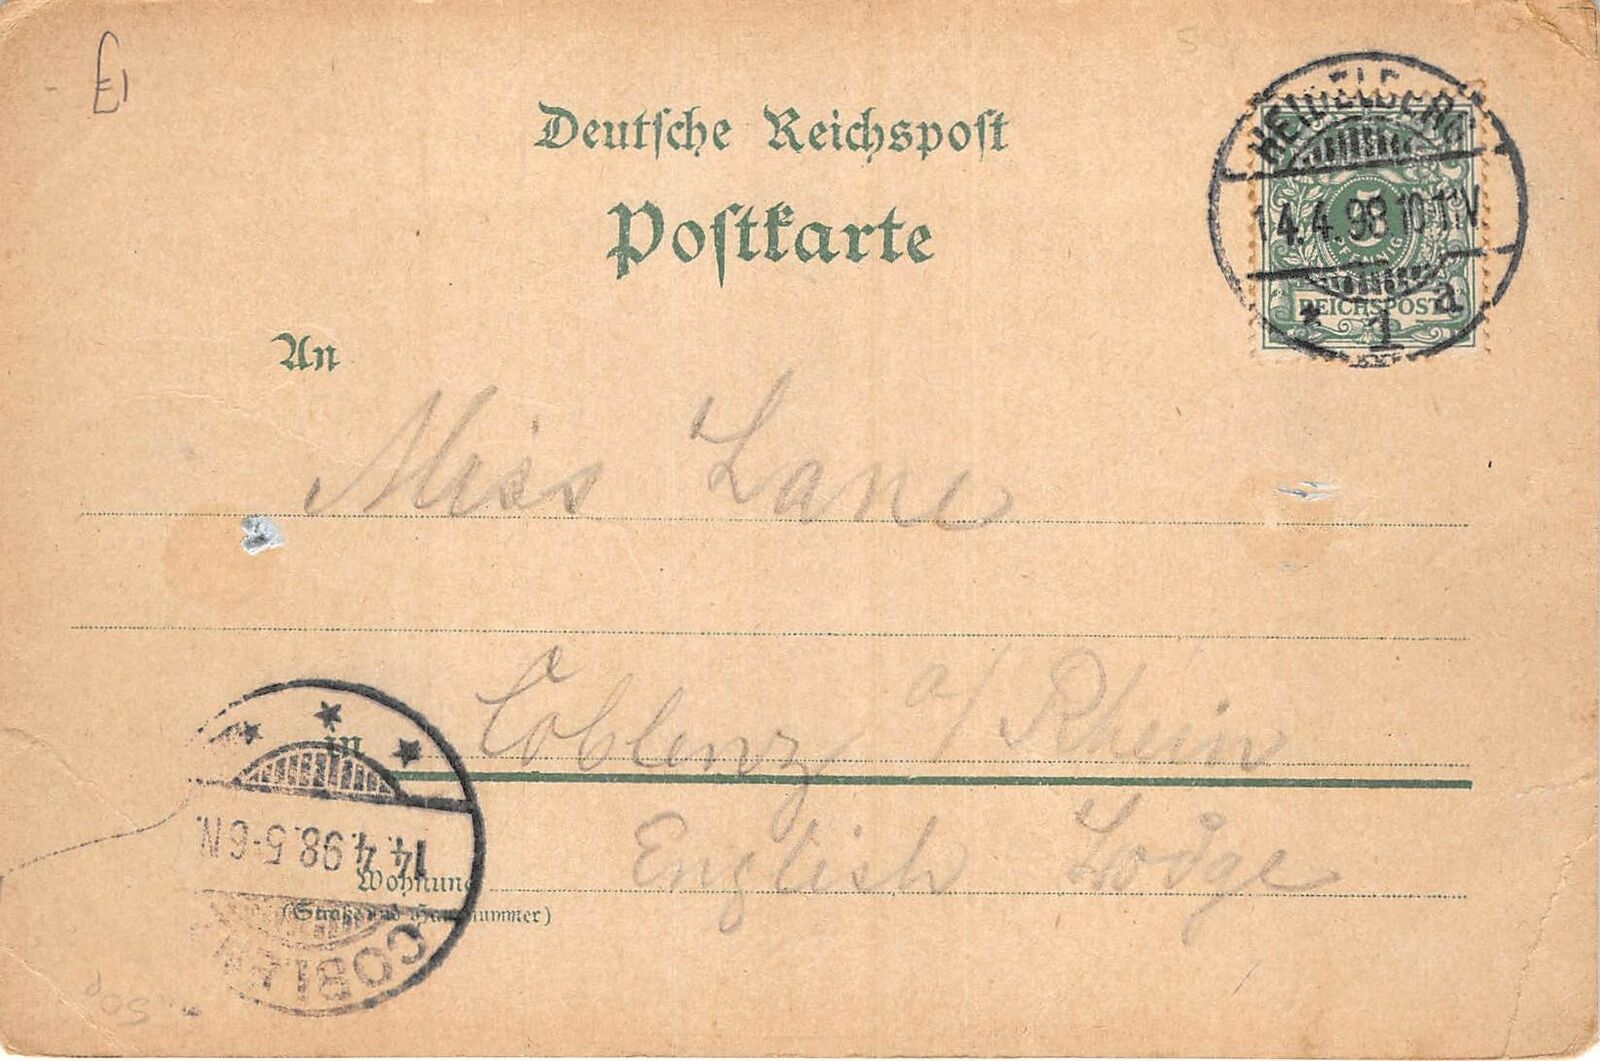 £1
Deutsche Reichspost
Postkarte
HEIDELBERG
14.4.98.10-11V.
* 1 a
5
REICHSPOST
An
Miss Lane
in Coblenz a/ Rhein
Wohnung English Lodge
(Straße und Hausnummer)
14.4.98.5-6N.
COBLENZ
50p